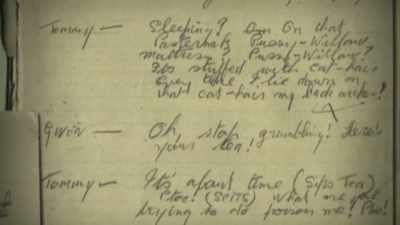 Tommy — Sleeping? Am On that
Pasternak Pussy-Willow
mattress Pussy-Willow?
Its stuffed with cat-tails
Every time I lie down on
that cat-tails my back aches!
Gwen — Oh, stop grumbling! Here's
your tea!
Tommy — It's about time (Sips Tea)
Ptoo! (Spits) What are you
trying to do poison me? Ptoo!